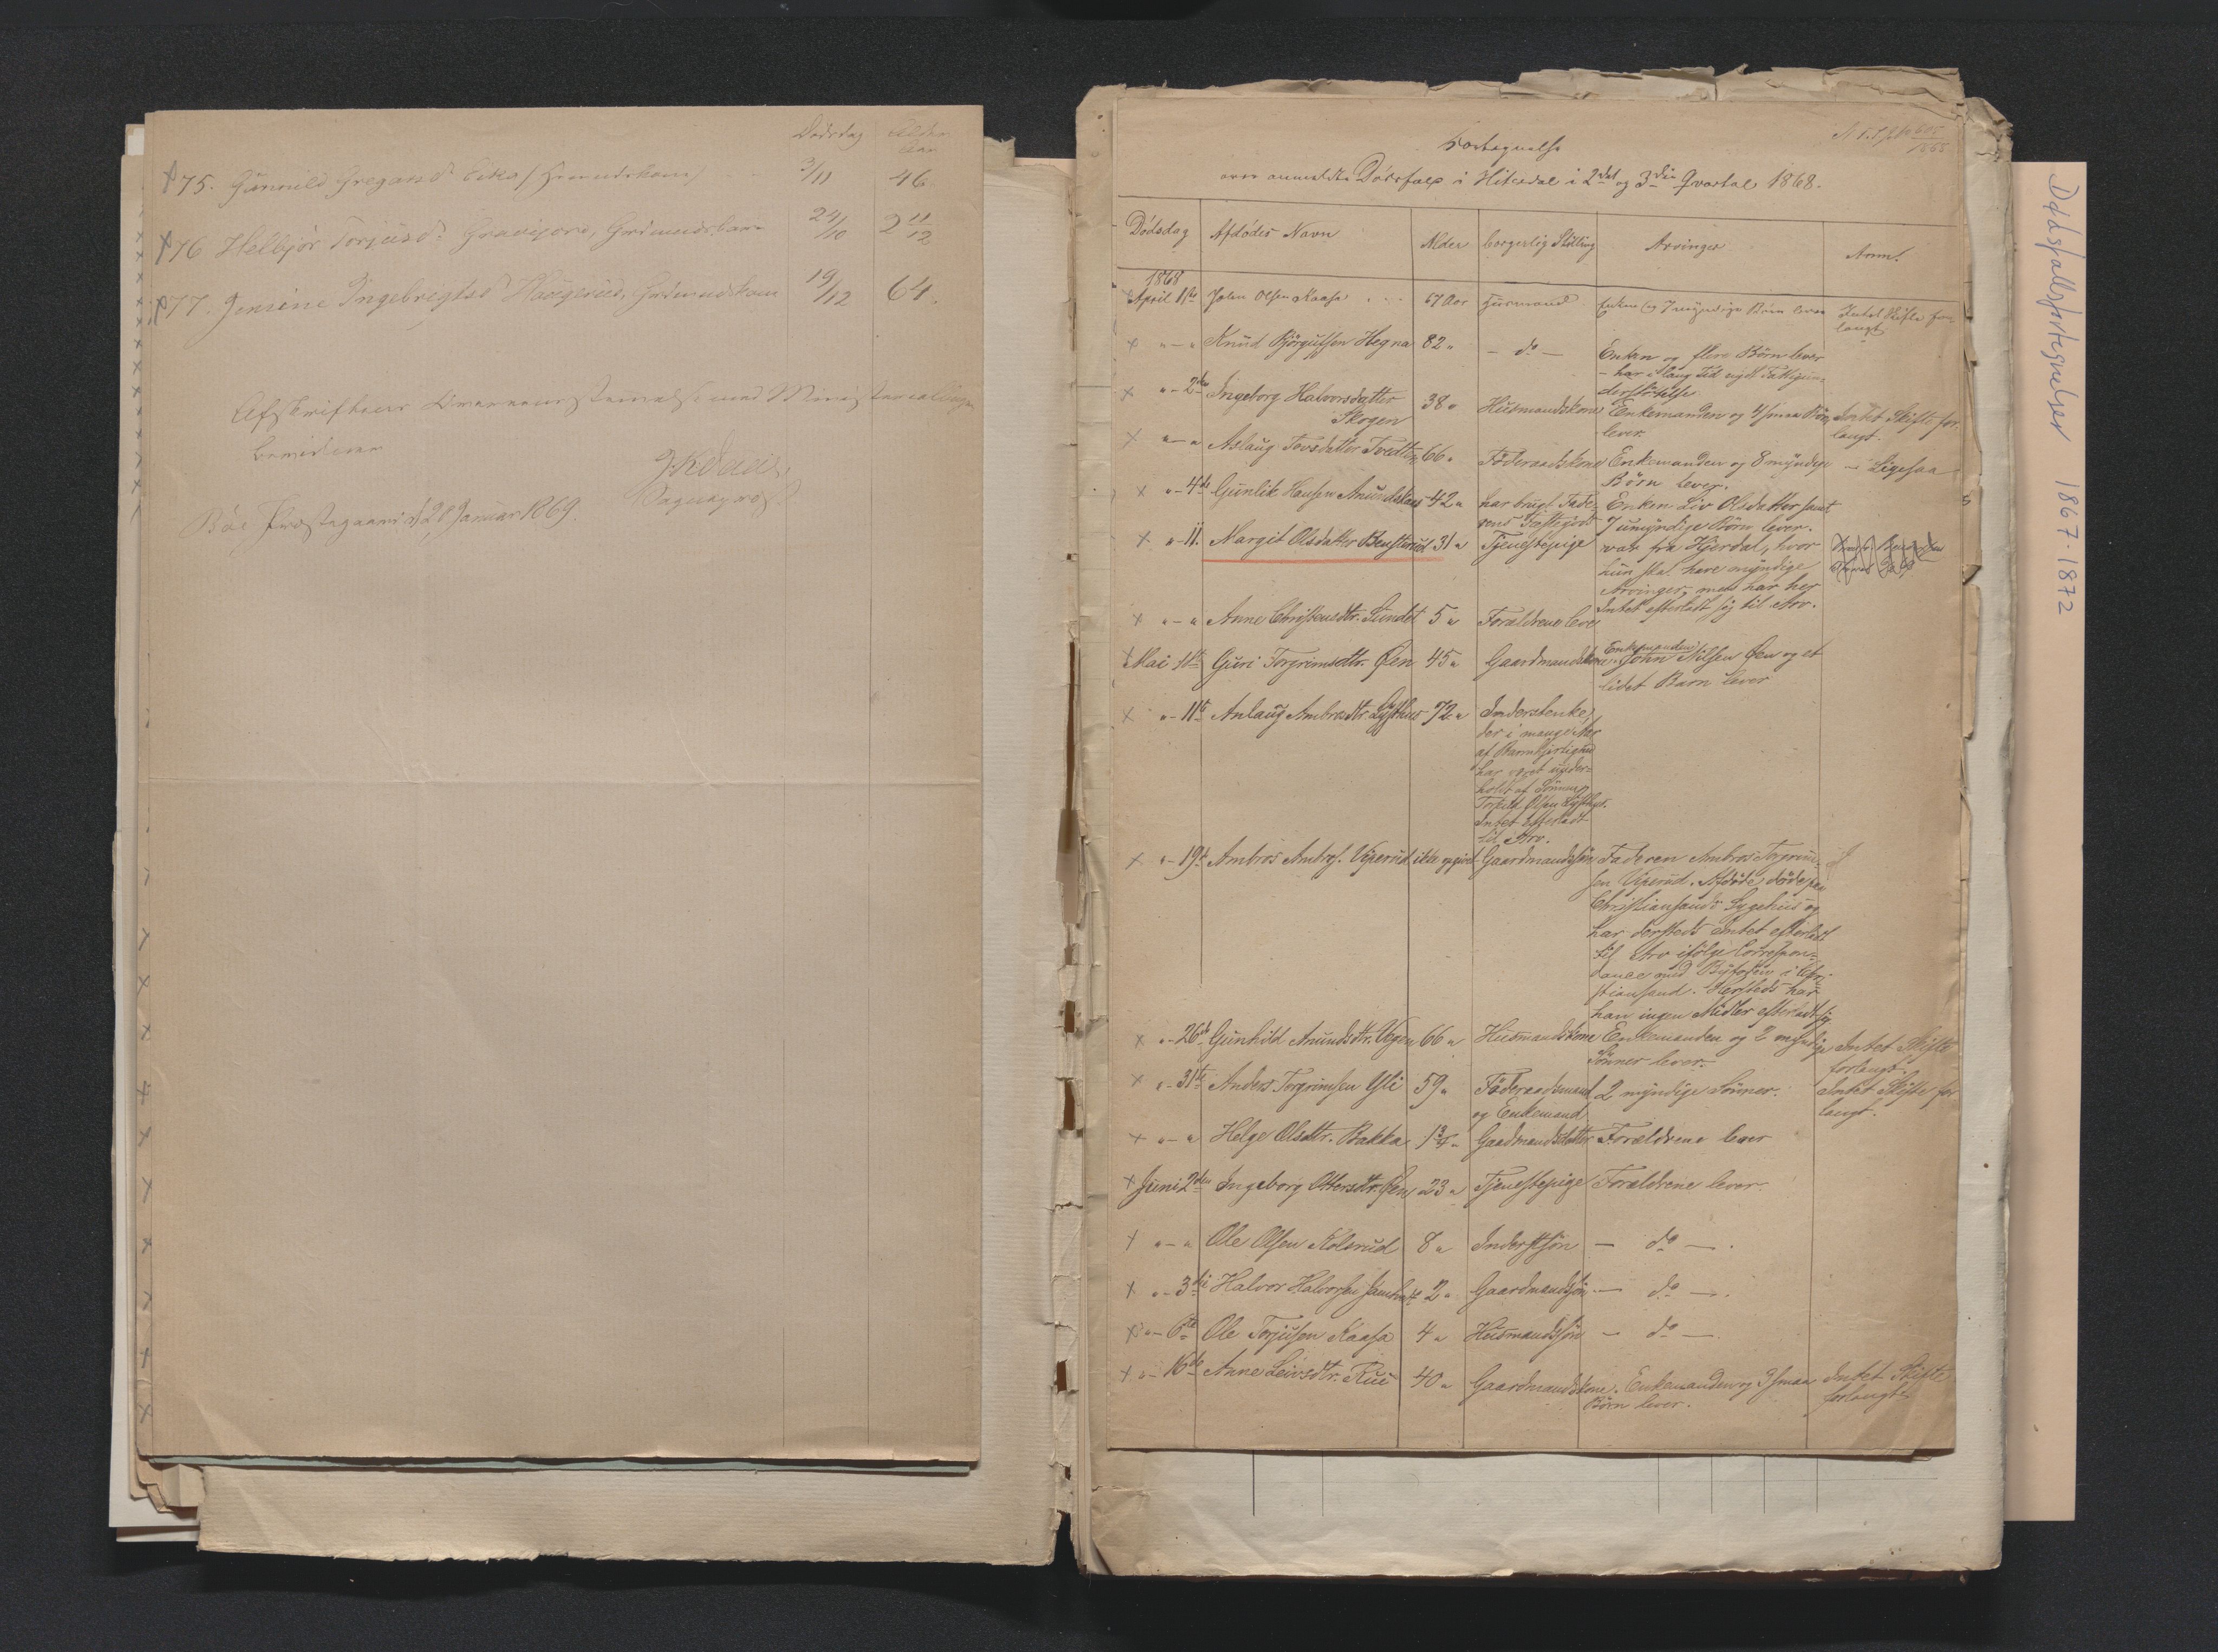 Dødsdag Alder
Aar
75. Gunnild Gregarsd. Eika / Huusmandskone / 3/11 46
76 Helbjør Torjusd. Gravijord, Grdmandsbarn 24/10 2 11/12
77. Jensine Ingebregtsd Haugerud, Grdmandskone 19/12 64.
Afskriftens Overensstemmelse med Ministerialbogen
bevidner
Bøe Præstegaard d. 28 Januar 1869.
Sogneprest
Fortegnelse
over anmeldte Dødsfald i Hitterdal i 2det og 3die Qvartal 1868.
Dødsdag Afdødes Navn Alder borgerlig Stilling Arvinger Anm.
1868
April 1ste John Olsen Kaasa 67 Aar Huusmand Enken og 7 myndige Børn lever Intet Skifte for-
langt
" - " Knud Bjørgulfsen Hegna 82 " - do - Enken og flere Børn lever
- har i lang Tid nydt Fattigun-
derstøttelse
" - 2den Ingeborg Halvorsdatter
Skogen 38 " Husmandskone Enkemanden og 4 smaa Børn
lever. Intet Skifte for-
langt.
" - " Aslaug Tovsdatter Tvedten 66 " Føderaadskone Enkemanden og 8 myndige
Børn lever. - Ligesaa
" - 4de Gunlik Hansen Amundskaas 42 " har brugt Fade-
rens Fæstegods Enken Liv Olsdatter samt
7 umyndige Børn lever.
" - 11. Margit Olsdatter Bensterud 31 " Tjenestepige var fra Hjerdal, hvor
hun skal have myndige
Arvinger, men har her
Intet efterladt sig til Arv.
" - " Anne Christensdtr. Sundet 5 " Forældrene lever
Mai 1ste Guri Torgrimsdtr. Øen 45 " Gaardmandskone Enkemanden
John Nilsen Øen og et
lidet Barn lever
" - 11te Anlaug Ambrosdtr. Lysthus 72 " Inderstenke,
der i mange Aar
af Barmhjertighed
har været under-
holdt af Sønnen
Torkild Olsen Lysthus.
Intet Efterladt
til Arv.
" - 19de Ambros Ambros. Viperud ikke opgivet Gaardmandssøn Faderen Ambros Torgrim-
sen Viperud. Afdøde døde paa
Christiansands Sygehus og
har dersteds Intet efterladt
til Arv ifølge Correspon-
dance med Byfogden i Chri-
stiansand. Hersteds har
han ingen Midler efterladt sig
" - 26de Gunhild Amundsdtr. Vegen 66 " Husmandskone Enkemanden og 2 myndige
Sønner lever. Intet Skifte
forlangt.
" - 31te Anders Torgrimsen Yli 59 " Føderaadsmand
og Enkemand 2 myndige Sønner. Intet Skifte for-
langt.
" - " Helge Olsdtr. Bakka 1 3/4 " Gaardmandsdatter Forældrene lever
Juni 2den Ingeborg Ottersdtr. Øen 23 " Tjenestepige Forældrene lever.
" - " Ole Olsen Kolsrud 8 " Inderstsøn - do -.
" - 3die Halvor Halvorsen 2 " Gaardmandssøn - do -.
" - 6te Ole Torjusen Kaasa 4 " Husmandssøn - do -.
" - 16de Anne Leivsdtr. Rui 40 " Gaardmandskone. Enkemanden og 3 smaa
Børn lever. Intet Skifte
forlangt.
Dødsfallsfortegnelser 1867-1872